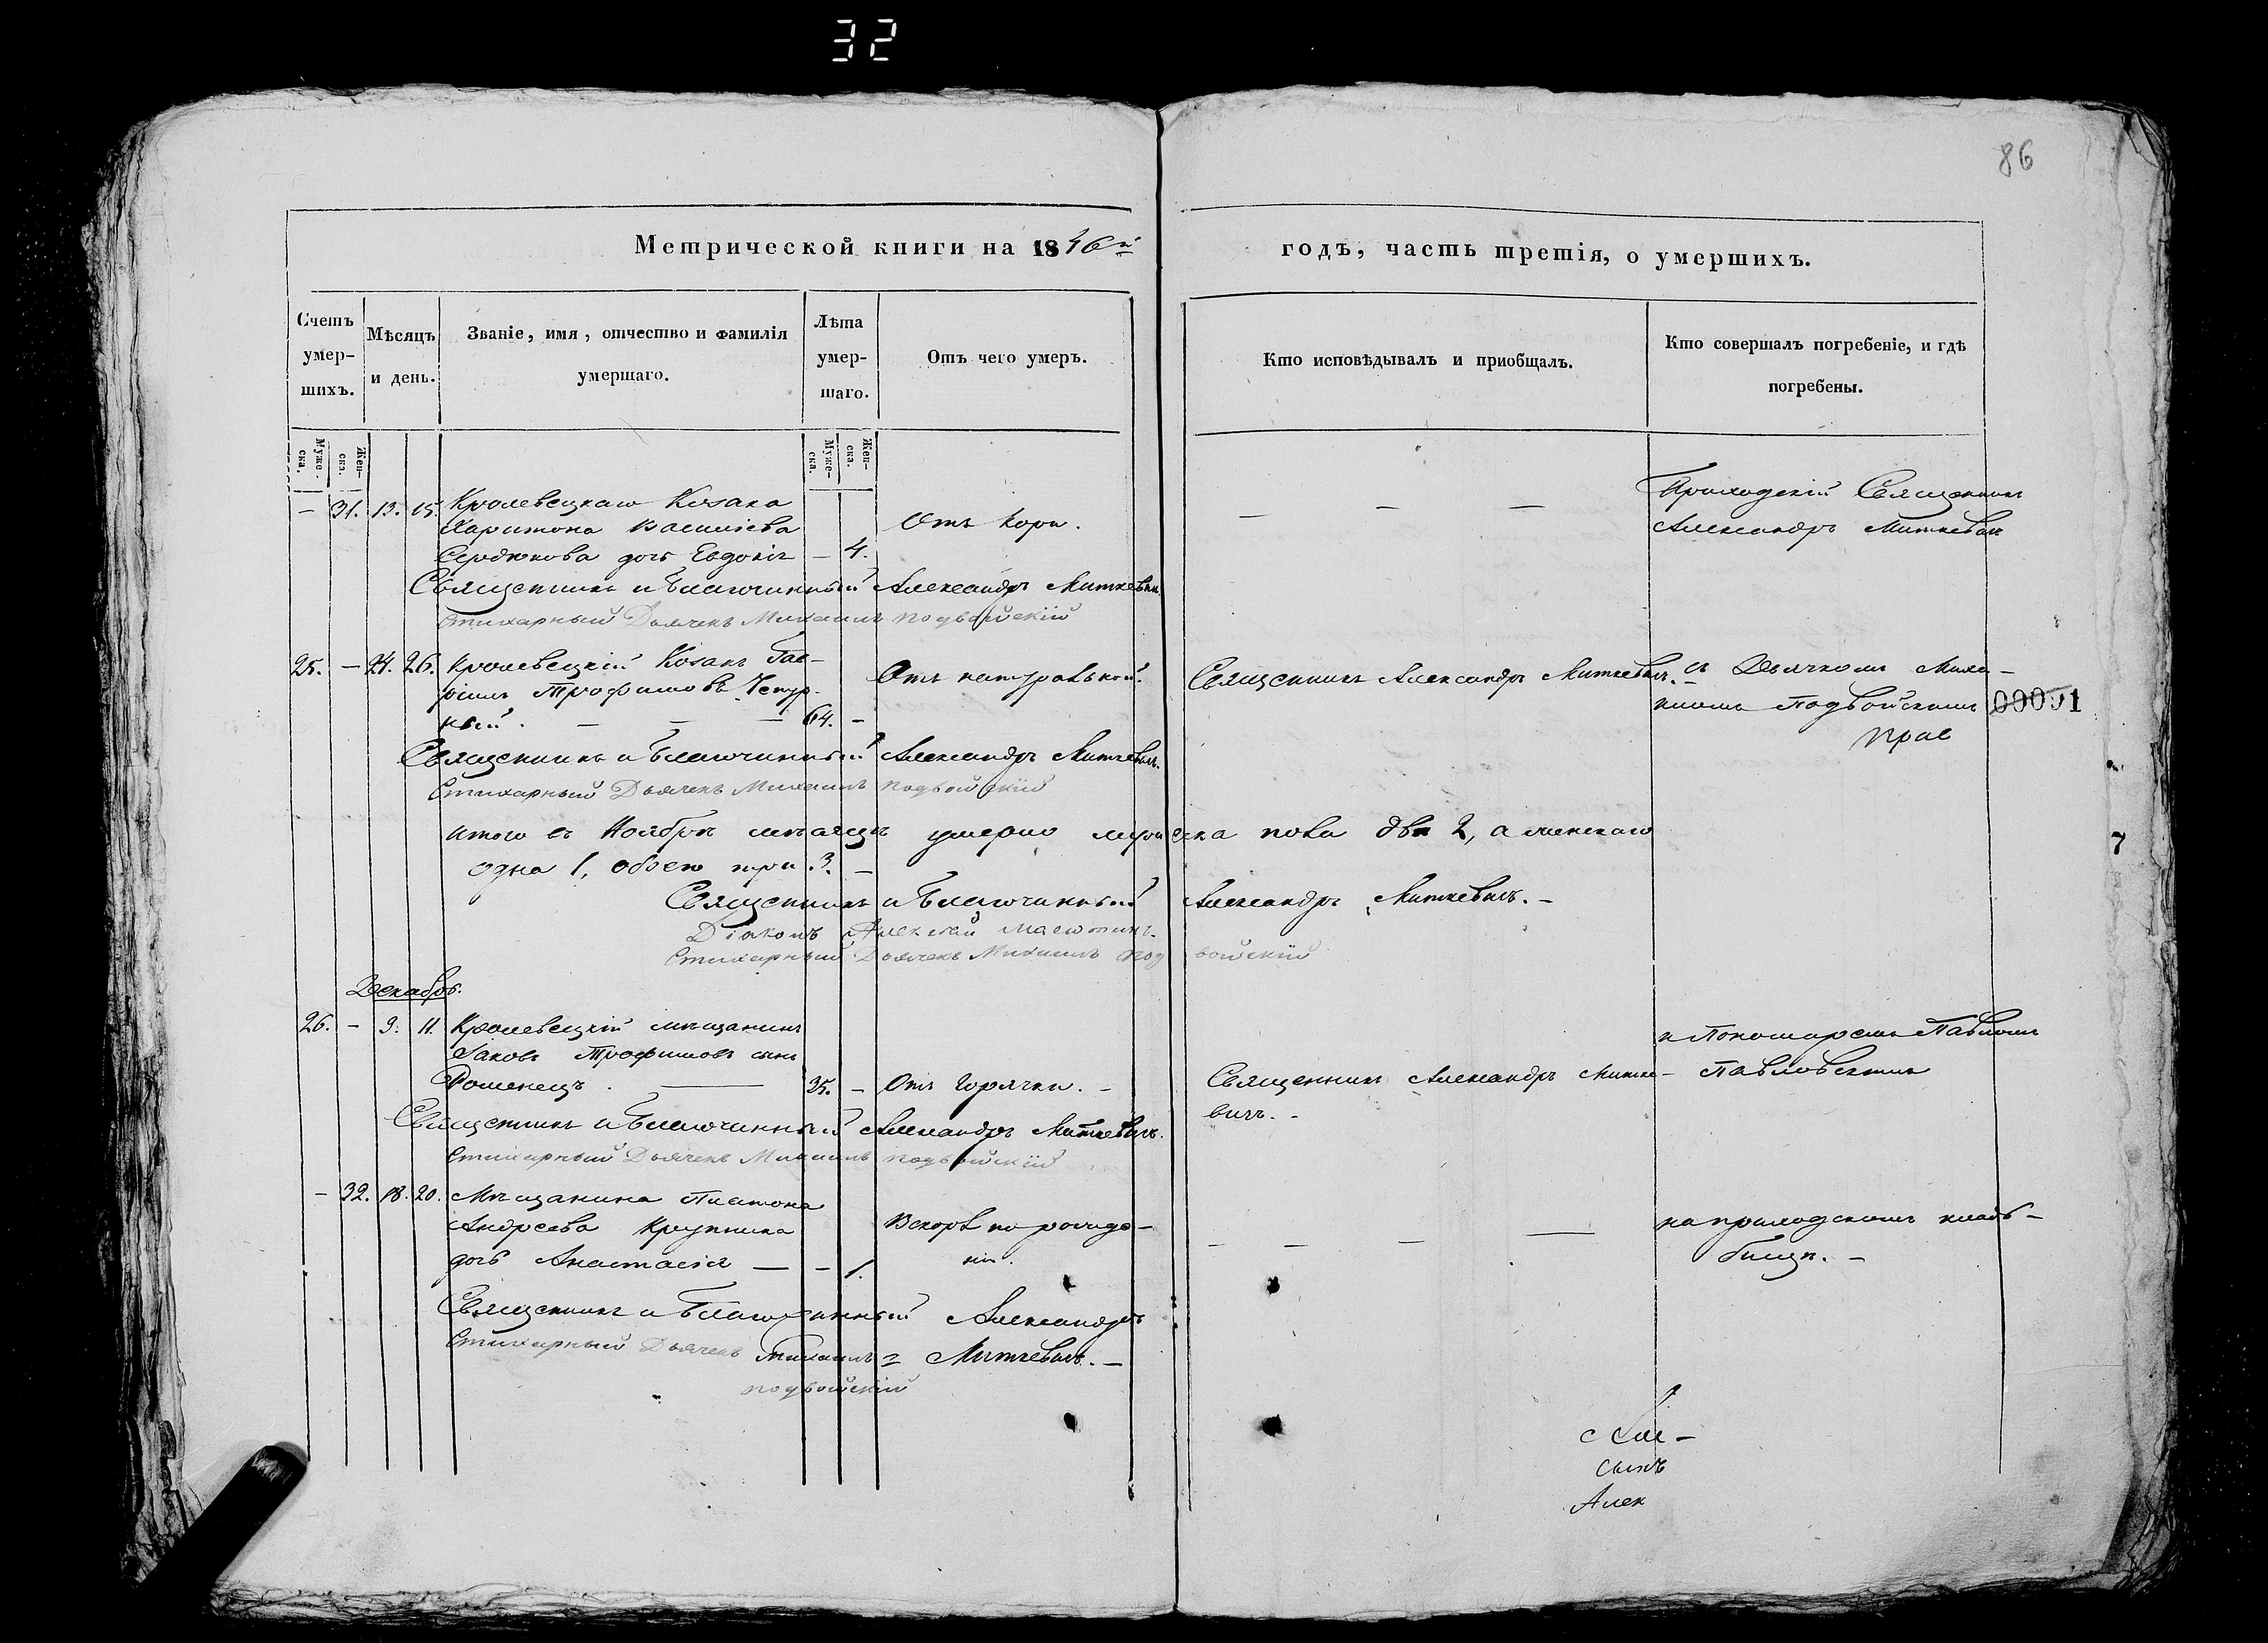 32
86
Метрической книги на 1846й годъ, часть третія, о умершихъ.
Счетъ умер-шихъ.
Мѣсяцъ и день.
Званіе, имя, отчество и фамилія умершаго.
Лѣта умер-шаго.
Отъ чего умеръ.
Кто исповѣдывалъ и приобщалъ.
Кто совершалъ погребеніе, и гдѣ погребены.
Муже-ска.
Жен-ска.
Муже-ска.
Жен-ска.
– 31. 13. 15. Кролевецкаго Козака
Харитона Василіева
Сердюкова дочь Евдокія – 4.
Отъ кори.
— — —
Приходскій Священникъ
Александръ Миткевичъ
Священникъ и Благочинный Александръ Миткевичъ
Стихарный Дьячекъ Михаилъ Подвойскій
25. – 24. 26. Кролевецкій Козакъ Гав-
риилъ Трофимовъ Чепур-
ный. — — — 64. –
Отъ натуральной.
Священникъ Александръ Миткевичъ. –
съ Дьячкомъ Миха-
иломъ Подвойскимъ
00091
Священникъ и Благочинный Александръ Миткевичъ.
Стихарный Дьячекъ Михаилъ Подвойскій
Итого въ Ноябрѣ мѣсяцѣ умерло мужеска пола два 2, а женскаго
одна 1, обоего три 3. –
Священникъ и Благочинный Александръ Миткевичъ. –
Діаконъ Алексѣй
Стихарный Дьячекъ Михаилъ Подвойскій
Декабрь.
26. – 9. 11. Кролевецкій мѣщанинъ
Яковъ Трофимовъ сынъ
Роменецъ. — 35. –
Отъ горячки. –
Священникъ Александръ Митке-
вичъ. –
и Пономаремъ Павломъ
Павловскимъ
Священникъ и Благочинный Александръ Миткевичъ.
Стихарный Дьячекъ Михаилъ Подвойскій
– 32. 18. 20. Мѣщанина Платона
Андреева Крупника
дочь Анастасія — – 1.
Вскорѣ по рожде-
ніи.
– — — —
на приходскомъ клад-
бищѣ. –
Священникъ и Благочинный Александръ
Стихарный Дьячекъ Михаилъ Миткевичъ. –
Подвойскій
сынъ
Алек